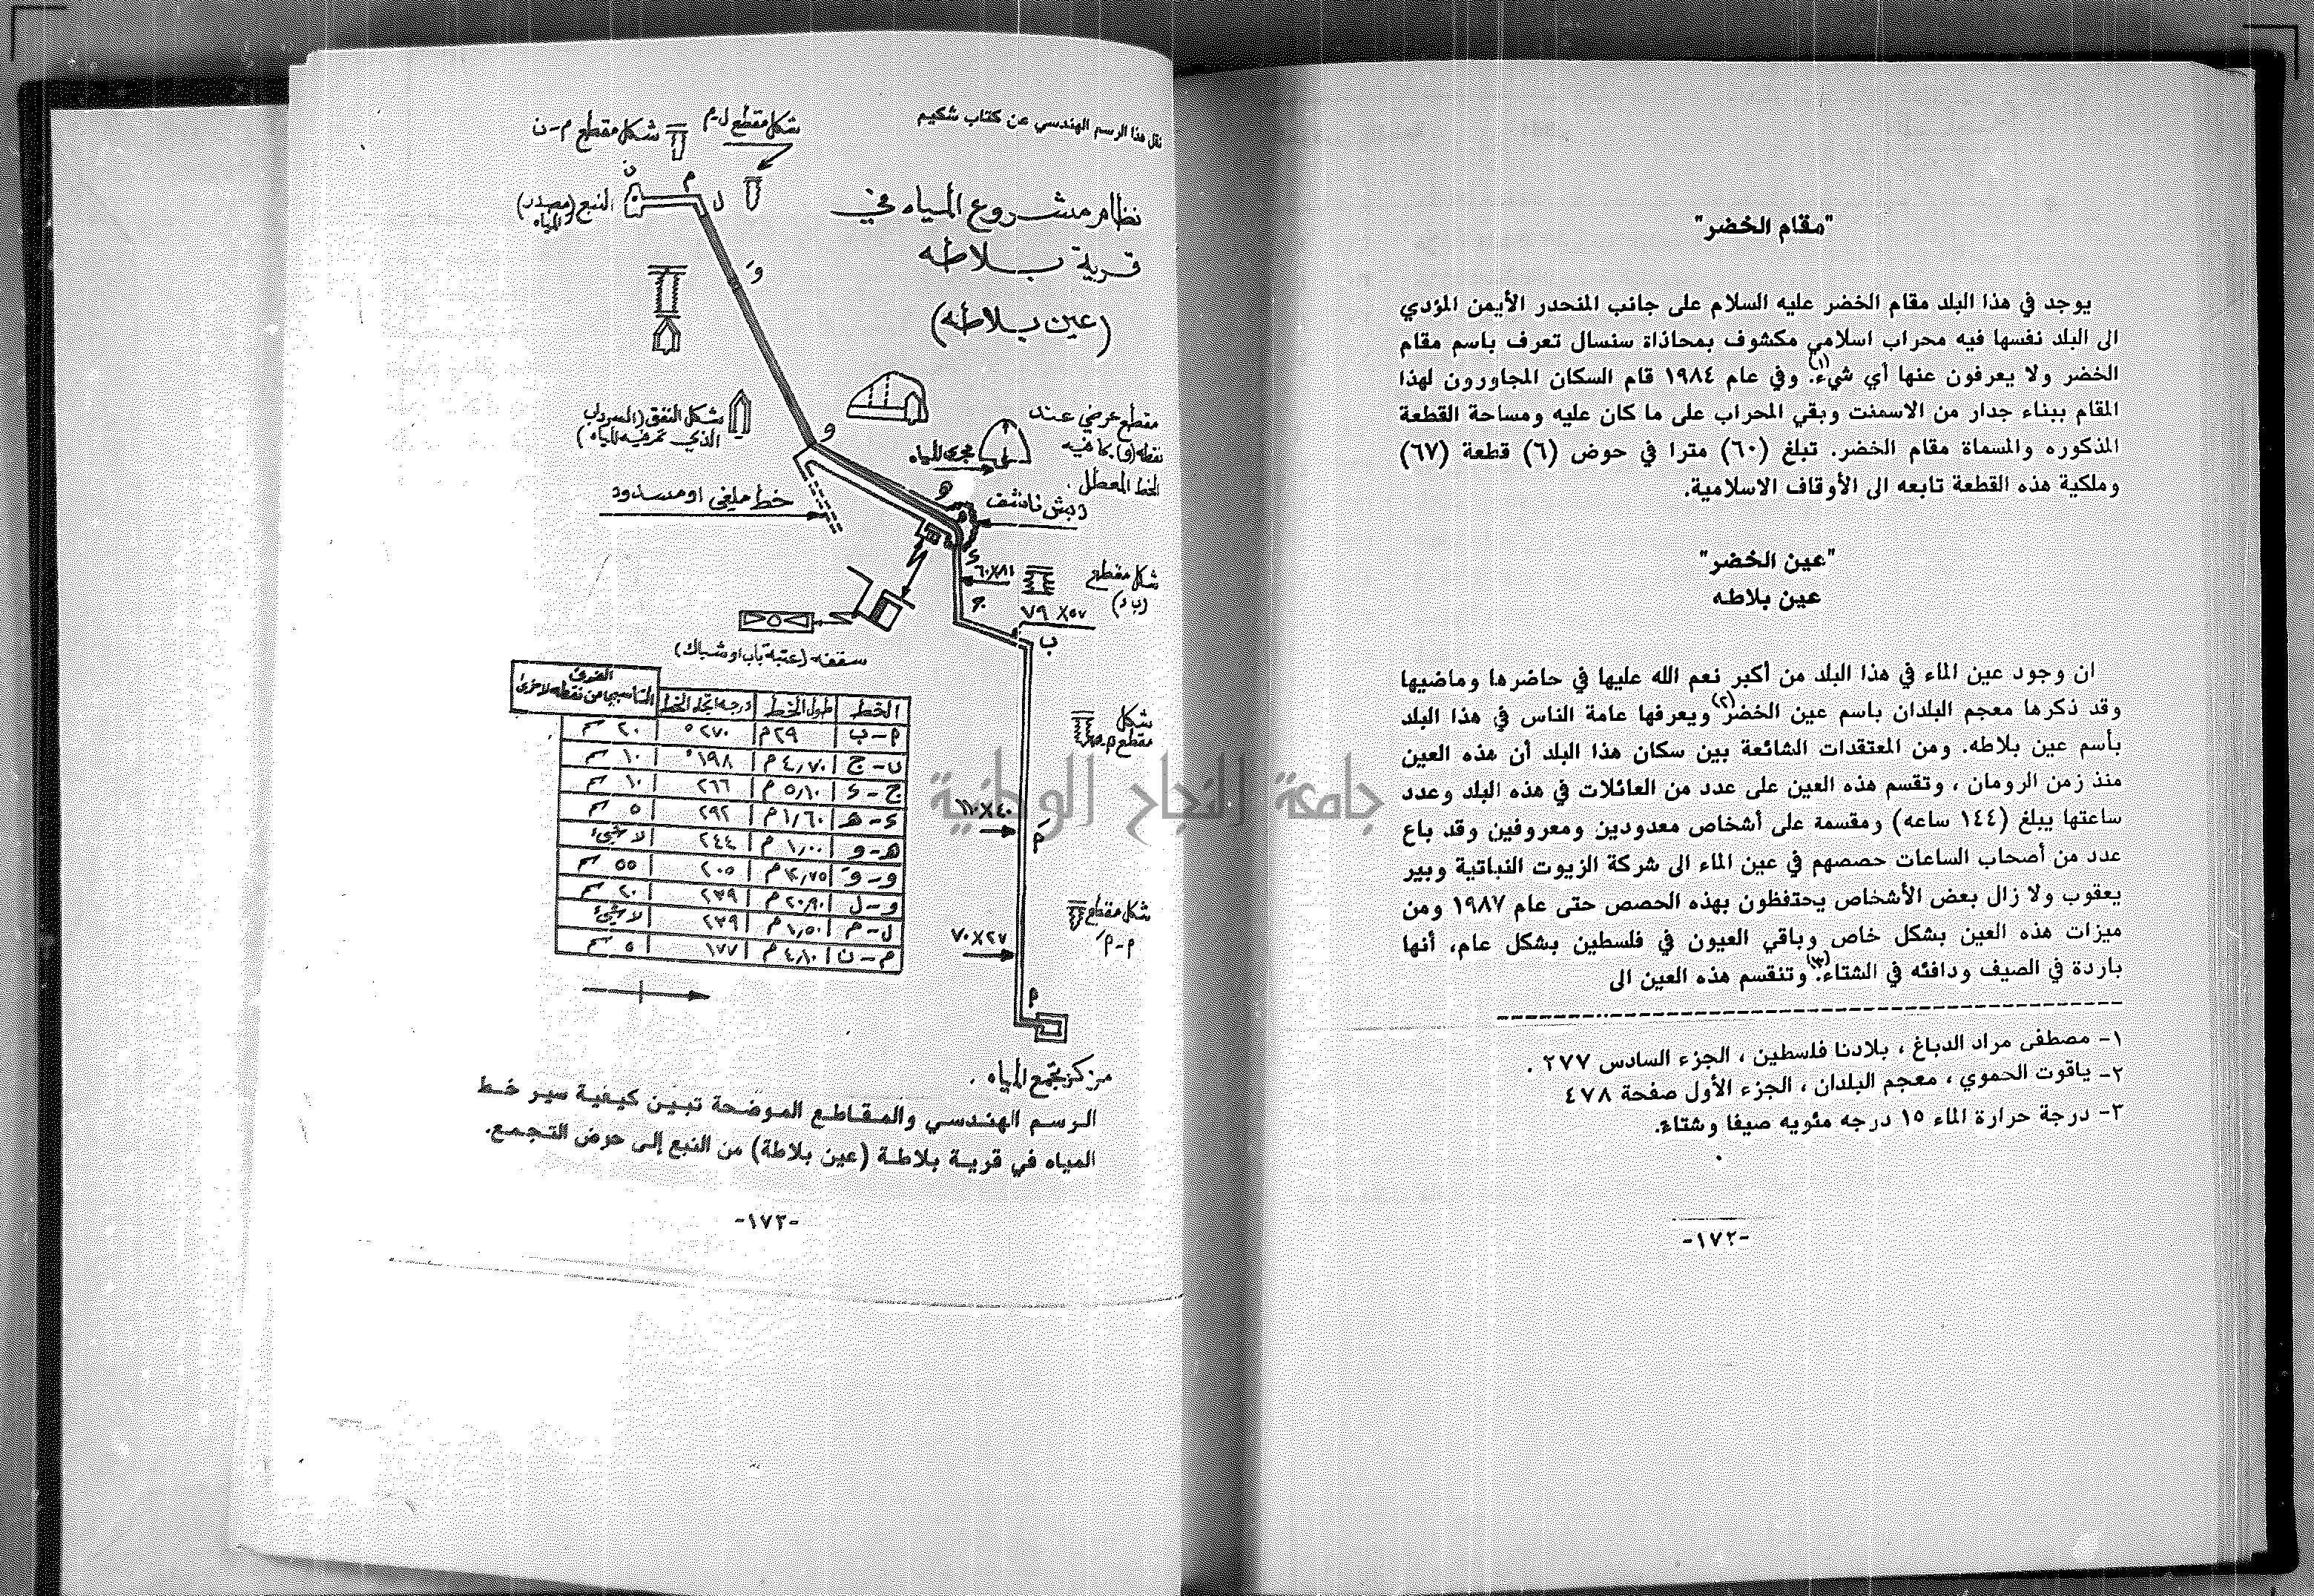 "مقام الخضر"
يوجد في هذا البلد مقام الخضر عليه السلام على جانب المنحدر الأيمن المؤدي
الى البلد نفسها فيه محراب اسلامي مكشوف بمحاذاة سنسال تعرف باسم مقام
الخضر ولا يعرفون عنها أي شيء.(١) وفي عام ١٩٨٤ قام السكان المجاورون لهذا
المقام ببناء جدار من الاسمنت وبقي المحراب على ما كان عليه ومساحة القطعة
المذكوره والمسماة مقام الخضر. تبلغ (٦٠) مترا في حوض (٦) قطعة (٦٧)
وملكية هذه القطعة تابعه الى الأوقاف الاسلامية.
"عين الخضر"
عين بلاطه
ان وجود عين الماء في هذا البلد من أكبر نعم الله عليها في حاضرها وماضيها
وقد ذكرها معجم البلدان باسم عين الخضر(٢) ويعرفها عامة الناس في هذا البلد
بأسم عين بلاطه. ومن المعتقدات الشائعة بين سكان هذا البلد أن هذه العين
منذ زمن الرومان ، وتقسم هذه العين على عدد من العائلات في هذه البلد وعدد
ساعتها يبلغ (١٤٤ ساعه) ومقسمة على أشخاص معدودين ومعروفين وقد باع
عدد من أصحاب الساعات حصصهم في عين الماء الى شركة الزيوت النباتية وبير
يعقوب ولا زال بعض الأشخاص يحتفظون بهذه الحصص حتى عام ١٩٨٧ ومن
ميزات هذه العين بشكل خاص وباقي العيون في فلسطين بشكل عام، أنها
باردة في الصيف ودافئه في الشتاء.(٣) وتنقسم هذه العين الى
١- مصطفى مراد الدباغ ، بلادنا فلسطين ، الجزء السادس ٢٧٧ .
٢- ياقوت الحموي ، معجم البلدان ، الجزء الأول صفحة ٤٧٨
٣- درجة حرارة الماء ١٥ درجه مئويه صيفا وشتاءً.
-١٧٢-
نقل هذا الرسم الهندسي عن كتاب شكيم
شكل مقطع ل-م
شكل مقطع م-ن
نظام مشروع المياه في
قرية بلاطه
(عين بلاطه)
النبع (مصدر
المياه)
ن
م
ل
وَ
شكل النفق (السرداب
الذي تمر فيه المياه)
مقطع عرضي عند
نقطه (و) بما فيه
الخط المعطل .
مجرى المياه
و
خط ملغي او مسدود
دبش ناشف
هـ
د
٦٠X٨١
شكل مقطع
ج
٧٩ X٥٧
ب
سقفه - (عتبة باب او شباك)
الخط | طول الخط | درجة اتجاه الخط |
م-ب | ٢٩م | ٢٧٠° | ٢٠ سم
ب-ج | ٤,٧٠ م | ١٩٨° | ١٠ سم
ج-د | ٥,١٠ م | ٢٦٦ | ١٠ سم
د-هـ | ١,٦٠ م | ٢٩٢ | ٥ سم
هـ-و | ١,٠٠ م | ٢٤٤ | لا شيء
و-وَ | ٢٠٥ | ٥٥ سم
و-ل | ٢٠,٩٠ م | ٢٣٩ | ٢٠ سم
ل-م | ١,٥٠ م | ٢٣٩ | لا شيء
م-ن | ٤,١٠ م | ١٧٧ | ٥ سم
شكل
مقطع
جامعة النجاح الوطنية
١١٠X٤٠
مَ
شكل مقطع
م-مَ
٧٠X٢٧
م
مركز تجمع المياه .
الرسم الهندسي والمقاطع الموضحة تبين كيفية سير خط
المياه في قرية بلاطة (عين بلاطة) من النبع إلى حوض التجمع.
-١٧٣-